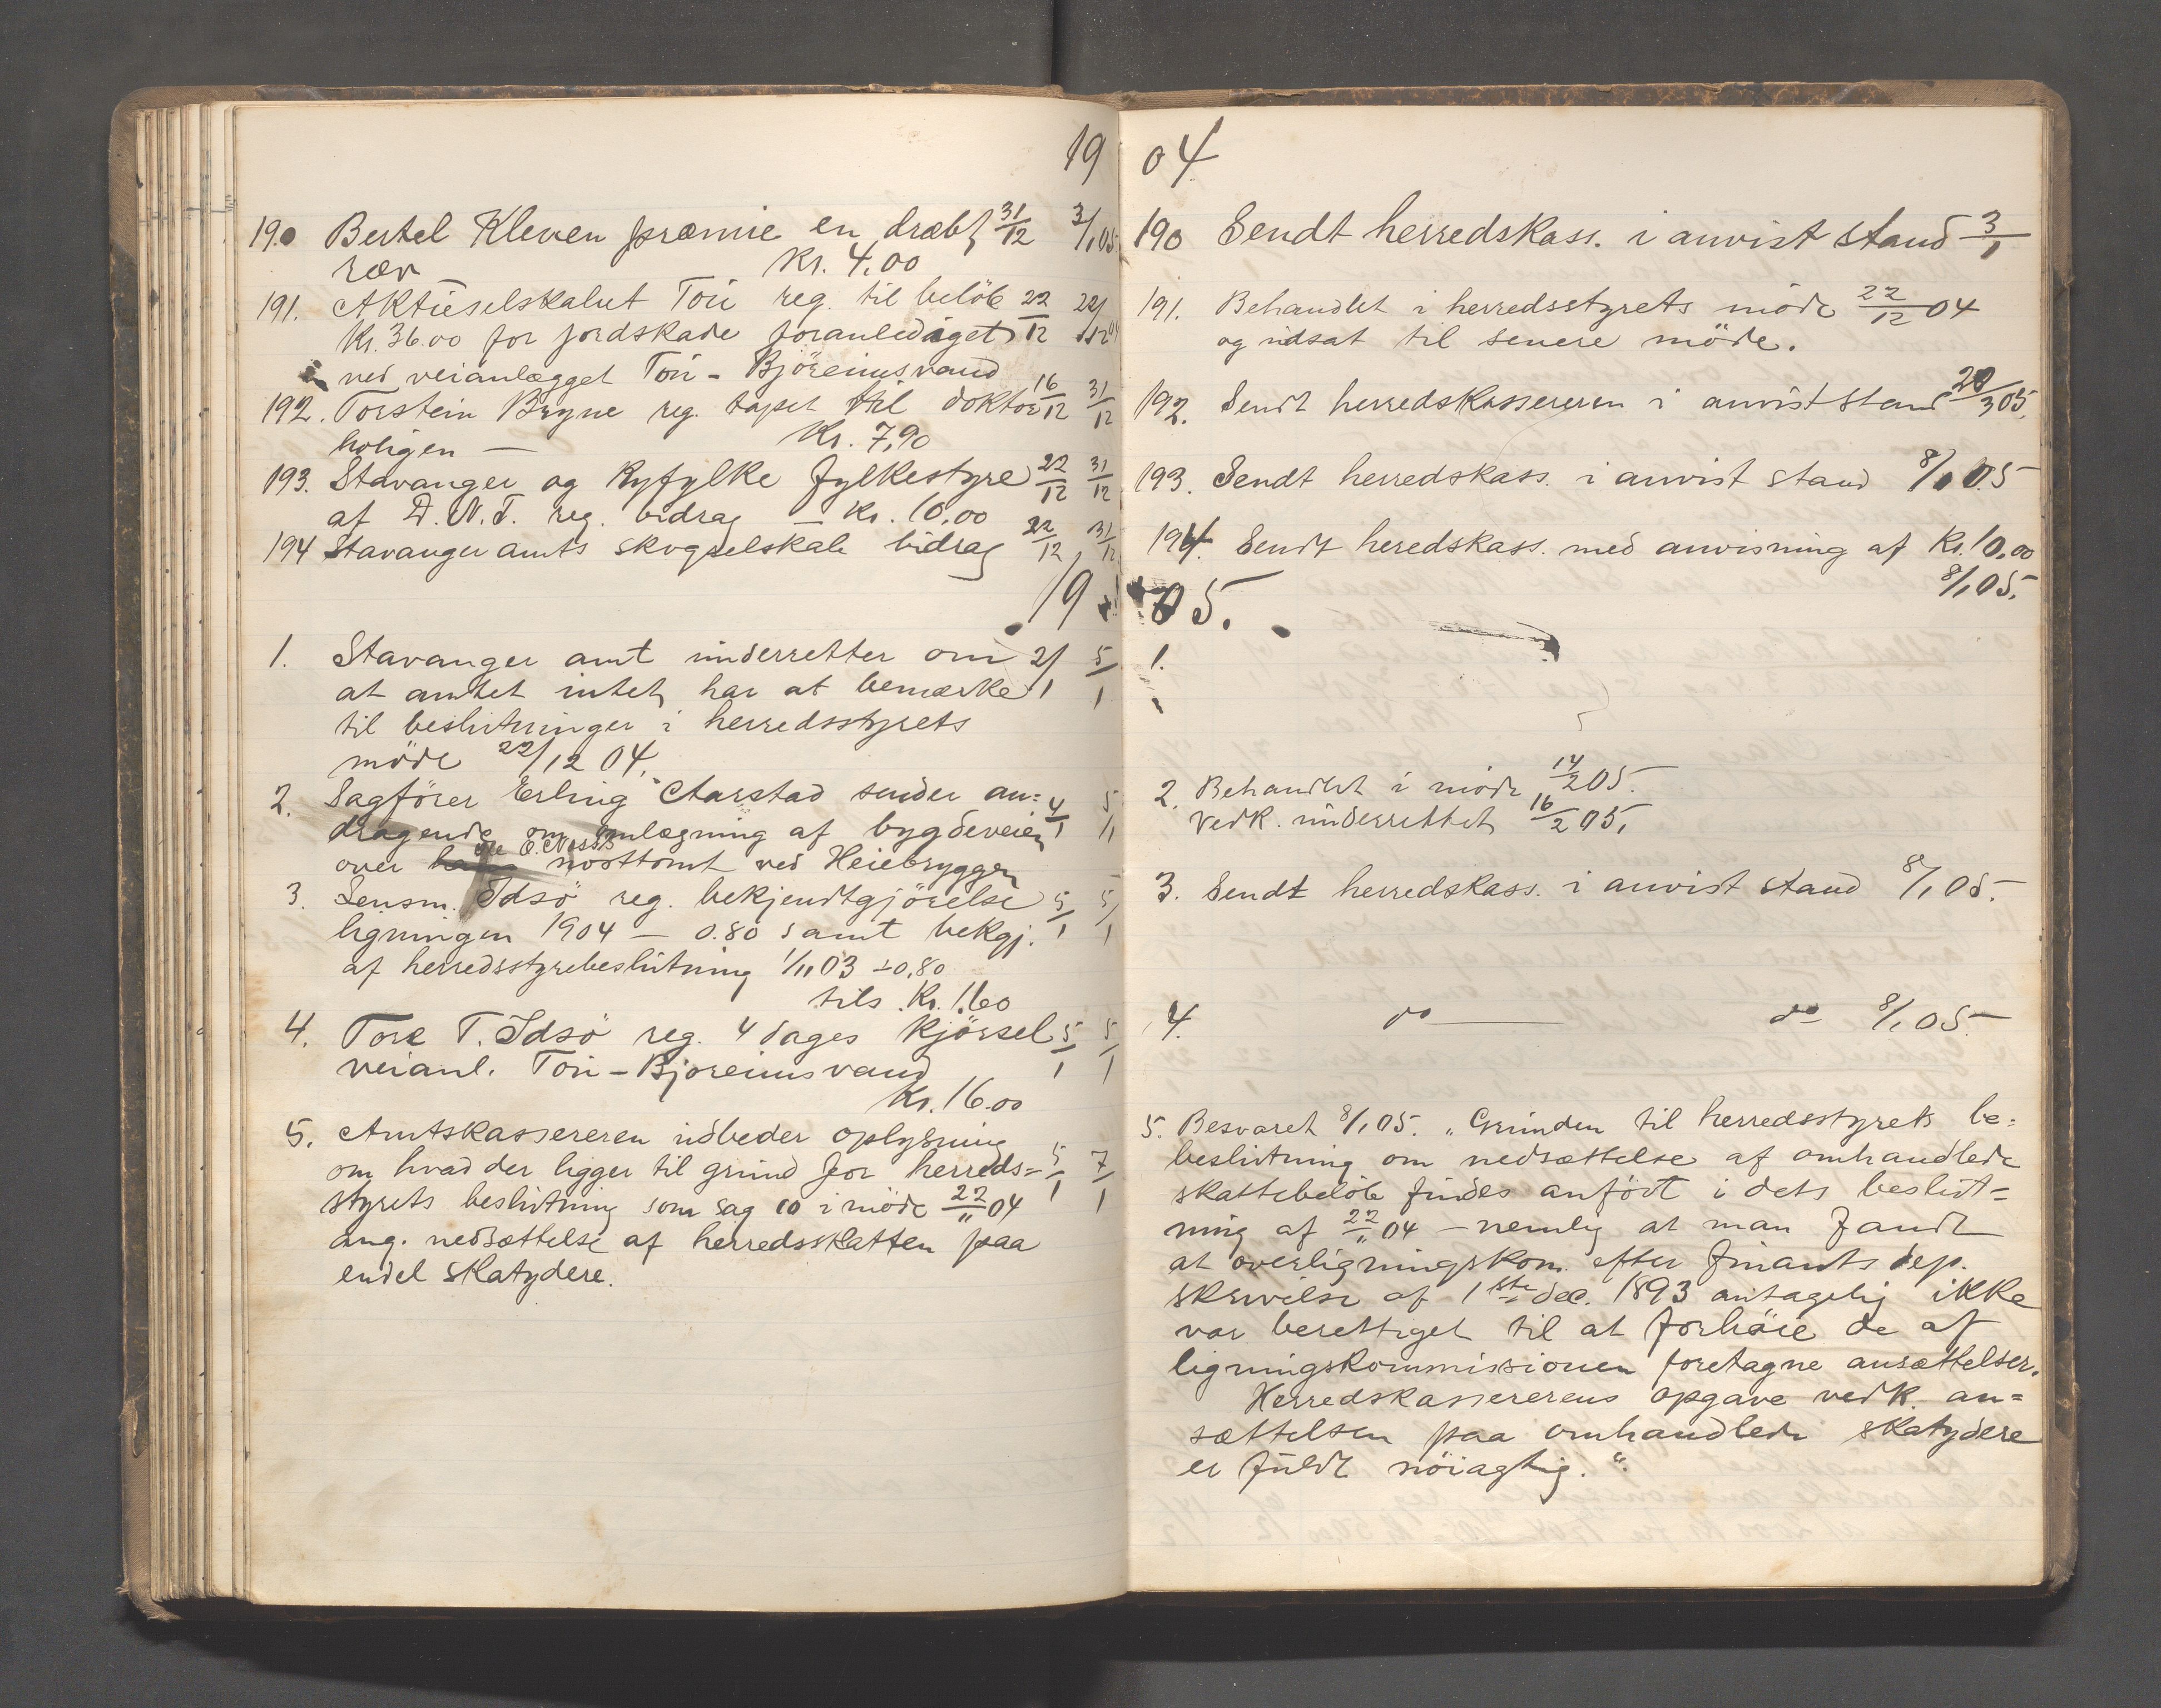 19
190 Bertel Kleven præmie en dræbt 31/12 3/1 05
ræv Kr. 4,00
191. Aktieselskabet Tou reg. til beløb 22/12 22/12 04
Kr. 36.00 for jordskade foranlediget
ved veianlægget Tou - Björeimsvand
192. Torstein Bryne reg. tapet til doktor 16/12 31/12
boligen — Kr. 7,90
193. Stavanger og Ryfylke fylkestyre 22/12 31/12
af D. N. T. reg. bidrag — Kr. 10,00
194 Stavanger amts skogselskab bidrag 22/12 31/12
19
1. Stavanger amt underretter om 2/1 5/1
at amtet intet har at bemærke
til beslutninger i herredsstyrets
möde 22/12 04.
2. Sagförer Erling Aarstad sender an= 4/1 5/1
dragende om omlægning af bygdeveien
over E. Næss's nosttomt ved Heiebryggen
3. Lensm. Idsö reg. bekjendtgjörelse 5/1 5/1
ligningen 1904 — 0.80 samt bekgj.
af herredsstyrebeslutning 1/11 03 - 0,80
tils. Kr. 1.60
4. Tore T. Idsö reg. 4 dages kjörsel 5/1 5/1
veianl. Tou - Bjoreimsvand
Kr. 16.00
5. Amtskassereren udbeder oplysning
om hvad der ligger til grund for herreds= 5/1 7/1
styrets beslutning som sag 10 i möde 22/11 04
ang. nedsættelse af herredsskatten paa
endel skatydere.
04
190 Sendt herredskass. i anvist stand 3/1
191. Behandlet i herredsstyrets möde 22/12 04
og udsat til senere möde.
192. Sendt herredskassereren i anvist stand 20/3 05.
193. Sendt herredskass. i anvist stand 8/1 05
194. Sendt heredskass. med anvisning af Kr. 10.00
8/1 05.
05.
1.
2. Behandlet i möde 14/2 05.
Vedk. underrettet 16/2 05.
3. Sendt herredskass. i anvist stand 8/1 05.
4. do — do 8/1 05.
5. Besvaret 8/1 05. „Grunden til herredsstyrets be=
beslutning om nedsættelse af omhandlede
skattebelöb findes anfört i dets beslut=
ning af 22/11 04 — nemlig at man fandt
at overligningskom. efter finants dep.
skrivelse af 1ste dec. 1893 antagelig ikke
var berettiget til at forhöie de af
ligningskommissionen foretagne ansættelser.
Herredskassererens opgave vedk. an=
sættelsen paa omhandlede skatydere
er fuldt nöiagtig."